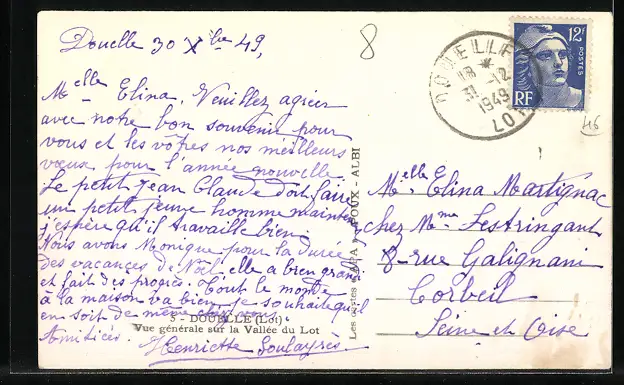 Douelle 30 Xbre 49,
Melle Elina. Veuillez agréer
avec notre bon souvenir pour
vous et les vôtres nos meilleurs
vœux pour l'année nouvelle.
Le petit Jean Claude doit faire
un petit jeune homme maintenant
j'espère qu'il travaille bien.
Nous avons Monique pour la durée
des vacances de Noël, elle a bien grandi
et fait des progrès. Tout le monde
à la maison va bien, je souhaite qu'il
en soit de même chez vous.
Amitiés.
Henriette Soulayrès
5 - DOUELLE (Lot)
Vue générale sur la Vallée du Lot
Les cartes APA - POUX - ALBI
8
DOUELLE
18 *
31 -12
1949
LOT
12F
POSTES
RF
46
Melle Elina Martignac
chez Mme Lestringant
8 rue Galignani
Corbeil
Seine et Oise